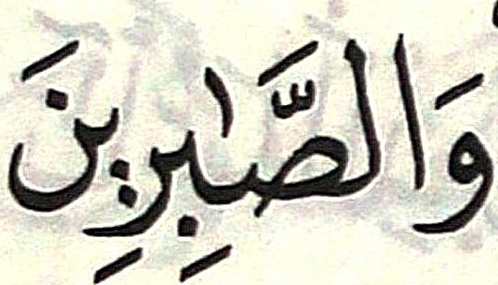 وَالصَّٰبِرِينَ